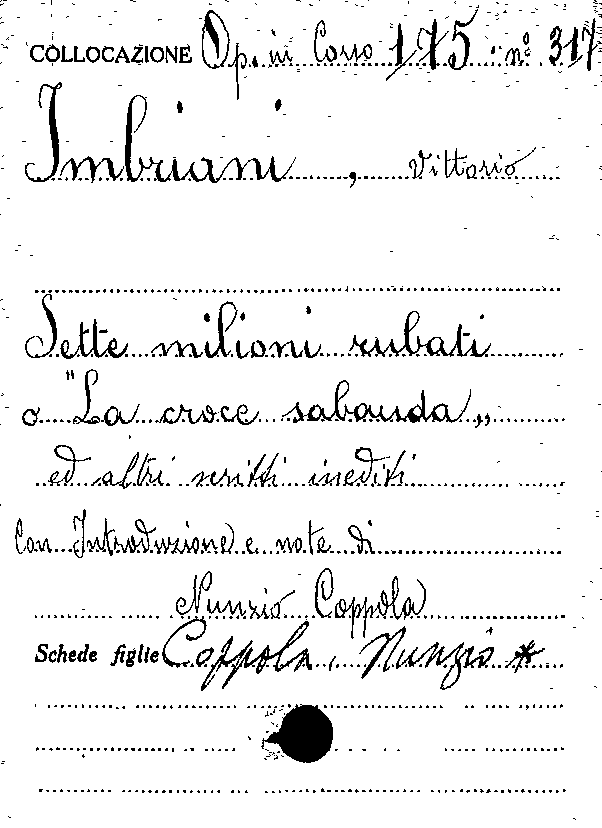 COLLOCAZIONE Op. in Corso 175. nº 317
Imbriani, Vittorio
Sette milioni rubati
o "La croce sabauda„
ed altri scritti inediti
Con Introduzione e note di
Nunzio Coppola
Schede figlie Coppola, Nunzio *